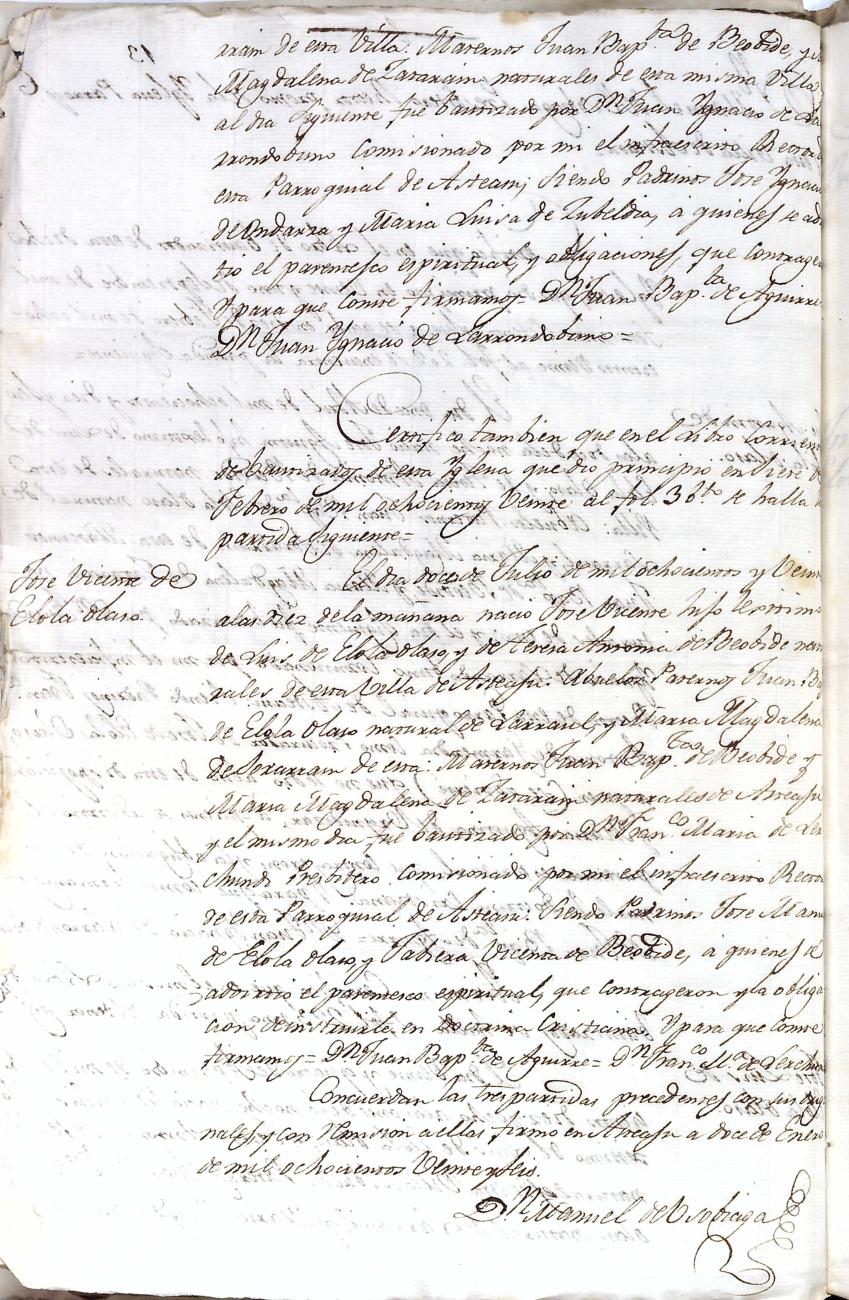 rrain de esta Villa. Maternos Juan Bap.ta de Beobide, y
Magdalena de Zatarain naturales de esta misma Villa
al dia siguiente fue bautizado por Dn. Juan Ygnacio de La
rrondobuno comisionado por mi el infraescrito Rector d
esta Parroquial de Asteasu; siendo Padrinos Jose Ygnacio
de Undarza y Maria Luisa de Zubeldia, á quienes se adv
tió el parentesco espiritual, y obligaciones, que contrage
Y para que conste firmamos= Dn. Juan Bap.ta de Aguirre
Dn. Juan Ygnacio de Larrondobuno=
Certifico tambien que en el Libro Corrient
de bautizados de esta Yglesia que dio principio en siete d
Febrero de mil ochocientos Veinte al fol. 36 se halla
partida siguiente=
Jose Vicente de
Elola Olaso.
El dia doce de Julio de mil ochocientos y Vein
a las diez de la mañana nació Jose Vicente hijo lexitimo
de Luis de Elola Olaso, y de Teresa Antonia de Beobide natu
rales de esta Villa de Asteasu. Abuelos Paternos Juan Ba
de Elola Olaso natural de Larraul, y Maria Magdalena
de de esta: Maternos Juan Bap.ta de Beobide y
Maria Magdalena de Zatarain naturales de Asteasu
y el mismo dia fue bautizado por Dn. Fran.co Maria de Ler
chundi Presbitero comisionado por mi el infraescrito Rector
de esta Parroquial de Asteasu. siendo Padrinos Jose Manu
de Elola Olaso, y Vicenta de Beobide, á quienes se
advirtió el parentesco espiritual, que contrageron y la obliga
cion de instruirle en Doctrina Cristiana. Y para que conste
firmamos= Dn. Juan Bap.ta de Aguirre= Dn. Fran.co M.a de Lerchun
Concuerdan las tres partidas precedentes con sus orig
nales, y con remision a ellas firmo en Asteasu a doce de Enero
de mil ochocientos Veinte y seis.
Dn. Manuel de Usobiaga